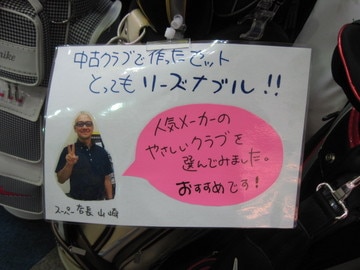 中古クラブで作ったセット
とってもリーズナブル!!
人気メーカーの
やさしいクラブを
選んでみました。
おすすめです!
スーパー店長 山崎